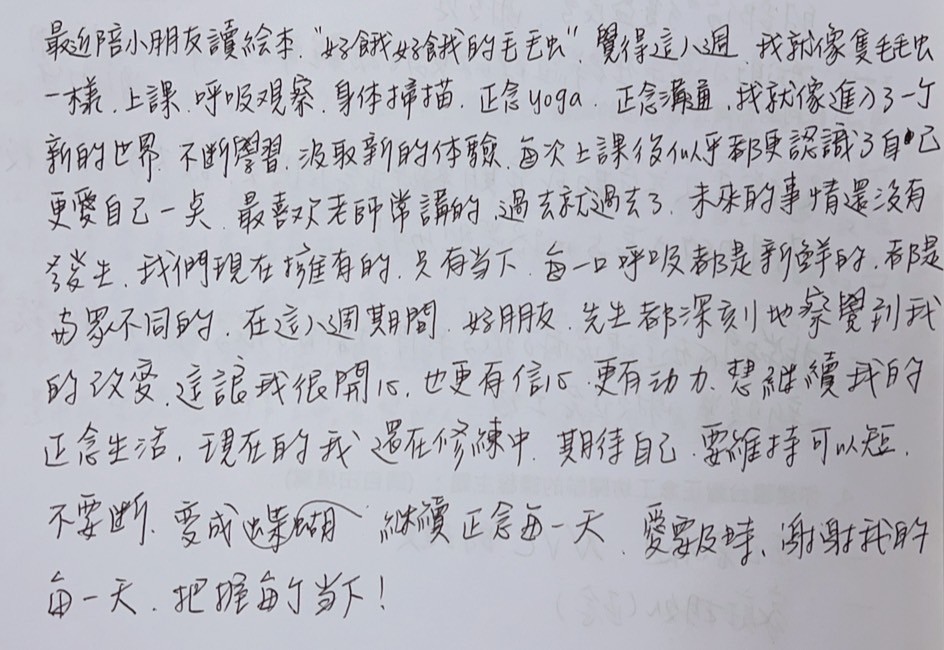 最近陪小朋友讀繪本."好餓好餓的毛毛虫",覺得這八週.我就像隻毛毛虫
一樣.上課.呼吸观察.身体掃描.正念yoga.正念溝通,我就像進入了一个
新的世界.不斷學習.汲取新的体驗.每次上課後似乎都更認識了自己
更愛自己一点.最喜欢老師常講的.過去就過去了.未來的事情還沒有
發生.我們現在擁有的.只有當下.每一口呼吸都是新鮮的.都是
与眾不同的.在這八週期間.好朋友.先生都深刻地察覺到我
的改变.這讓我很開心.也更有信心.更有动力.想継續我的
正念生活.現在的我還在修練中.期待自己.要維持可以短.
不要斷.変成蝴蝶 継續正念每一天.愛要及時、謝謝我的
每一天.把握每个當下!